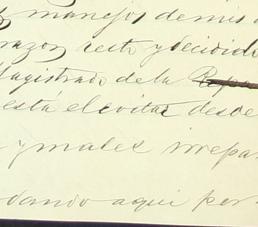 manejos de mis
razon recta y decidida
Magistrado de la
está el evitar desde
y males irrepa
dando aqui por